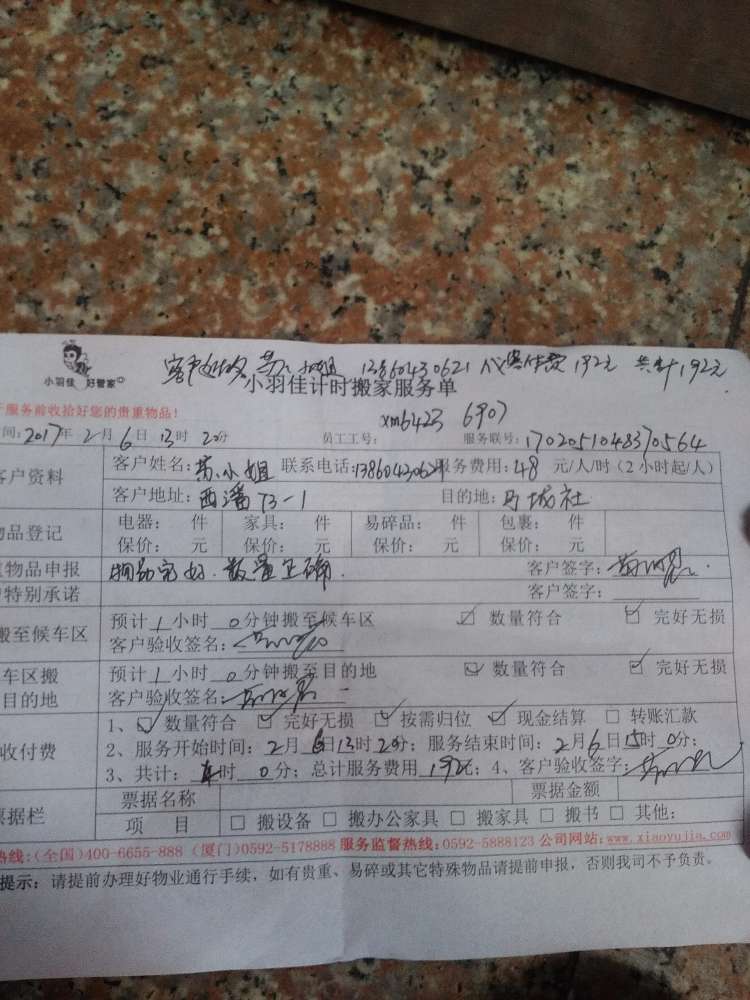 小羽佳 好管家
小姐 13860430621 192元 共计192元
小羽佳计时搬家服务单
服务前收拾好您的贵重物品！
xm6423 6907
间：2017年2月6日13时20分 员工工号： 服务联号：1702051048370564
客户资料 客户姓名：苏小姐 联系电话：13860430621 服务费用：48 元/人/时（2小时起/人）
客户地址：西潘73-1 目的地：马城社
物品登记 电器： 件 家具： 件 易碎品： 件 包裹： 件
保价： 元 保价： 元 保价： 元 保价： 元
物品申报 物品完好．数量正确． 客户签字：
特别承诺 客户签字：
搬至候车区 预计1小时0分钟搬至候车区 ☑ 数量符合 ☑ 完好无损
客户验收签名：
车区搬 预计1小时0分钟搬至目的地 ☑ 数量符合 ☑ 完好无损
目的地 客户验收签名：
1、☑ 数量符合 ☑ 完好无损 ☑ 按需归位 ☑ 现金结算 □ 转账汇款
收付费 2、服务开始时间：2月6日13时20分；服务结束时间：2月6日15时0分；
3、共计：时0分；总计服务费用192元；4、客户验收签字：
票据名称 票据金额
票据栏 项 目 □ 搬设备 □ 搬办公家具 □ 搬家具 □ 搬书 □ 其他：
热线：（全国）400-6655-888（厦门）0592-5178888 服务监督热线：0592-5888123 公司网站：www.xiaoyujia.com
提示：请提前办理好物业通行手续，如有贵重、易碎或其它特殊物品请提前申报，否则我司不予负责。